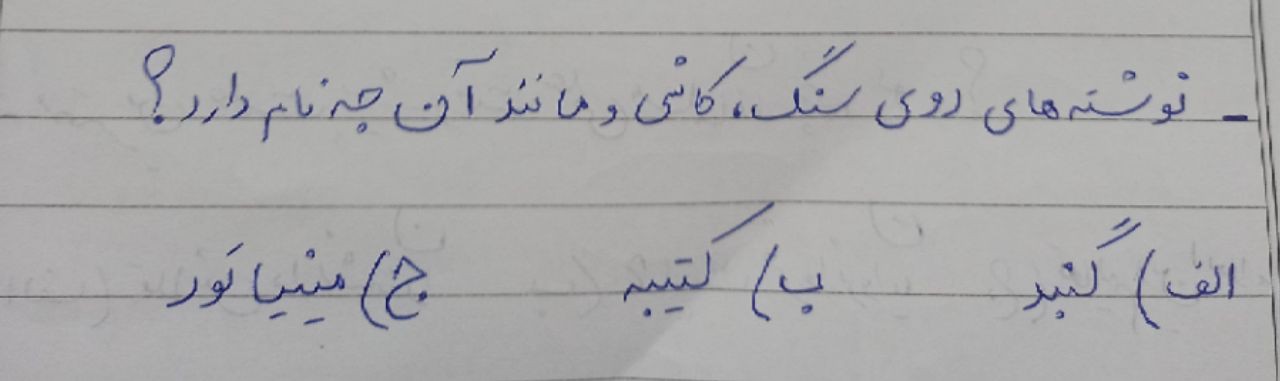 - نوشته های روی سنگ، کاشی و مانند آن چه نام دارد؟
الف) گنبد ب) کتیبه ج) مینیاتور